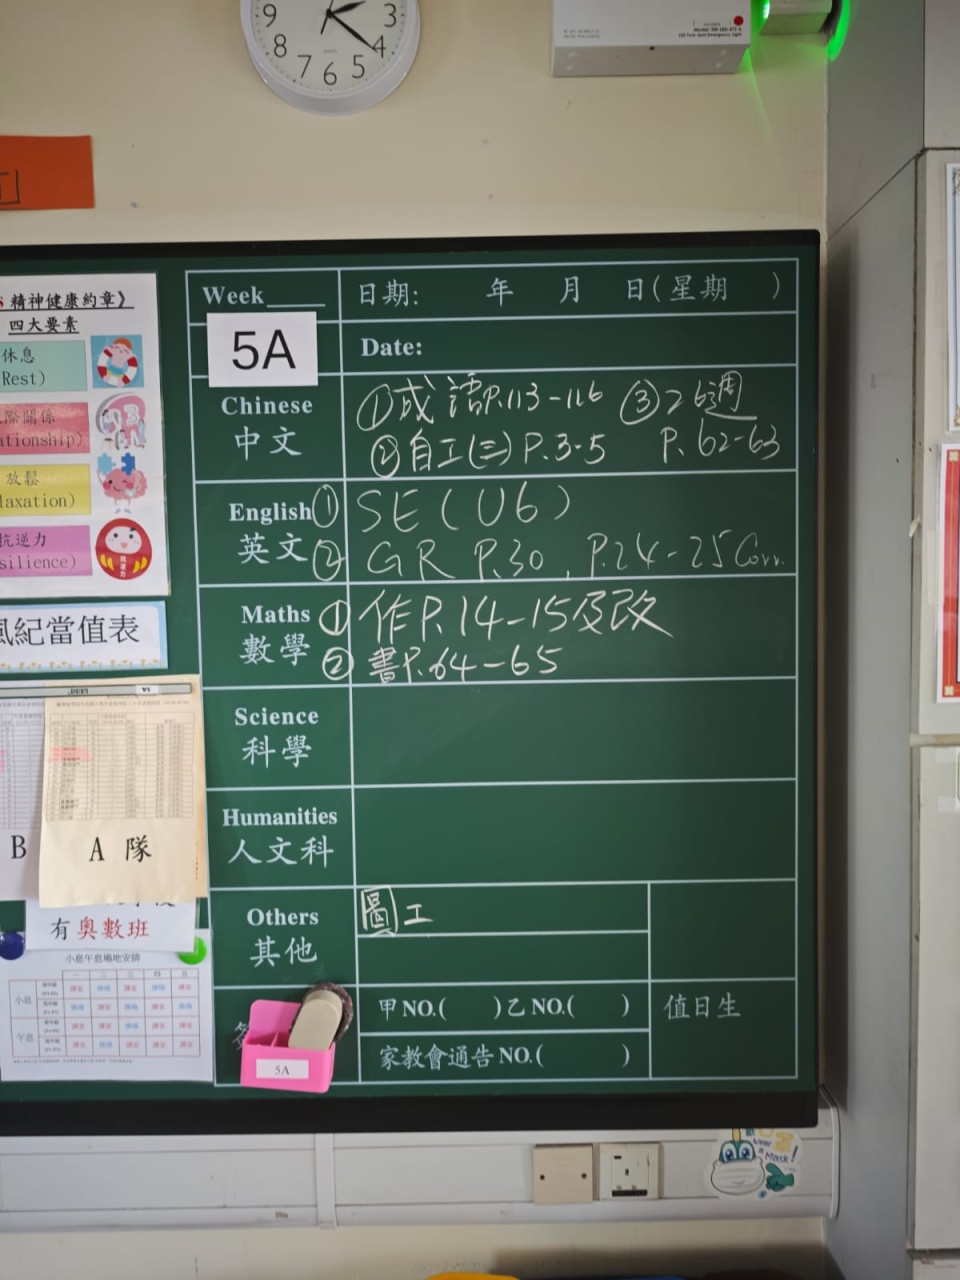 9 3
8 4
7 6 5
S 精神健康約章》
四大要素
休息
Rest)
際關係
ationship)
放鬆
laxation)
抗逆力
silience)
風紀當值表
B
A 隊
有奧數班
小息午息場地安排
一 二 三 四 五
小息
午息
Week
日期: 年 月 日(星期 )
5A
Date:
Chinese
中文
①成語P.113-116 ③26週
②自工(三)P.3-5 P.62-63
English
英文
① SE (U6)
② GR P.30, P.24-25 Corr.
Maths
數學
① 作P.14-15及改
② 書P.64-65
Science
科學
Humanities
人文科
Others
其他
圖工
甲NO.( )乙NO.( )
家教會通告NO.( )
值日生
5A
Wear
a Mask!